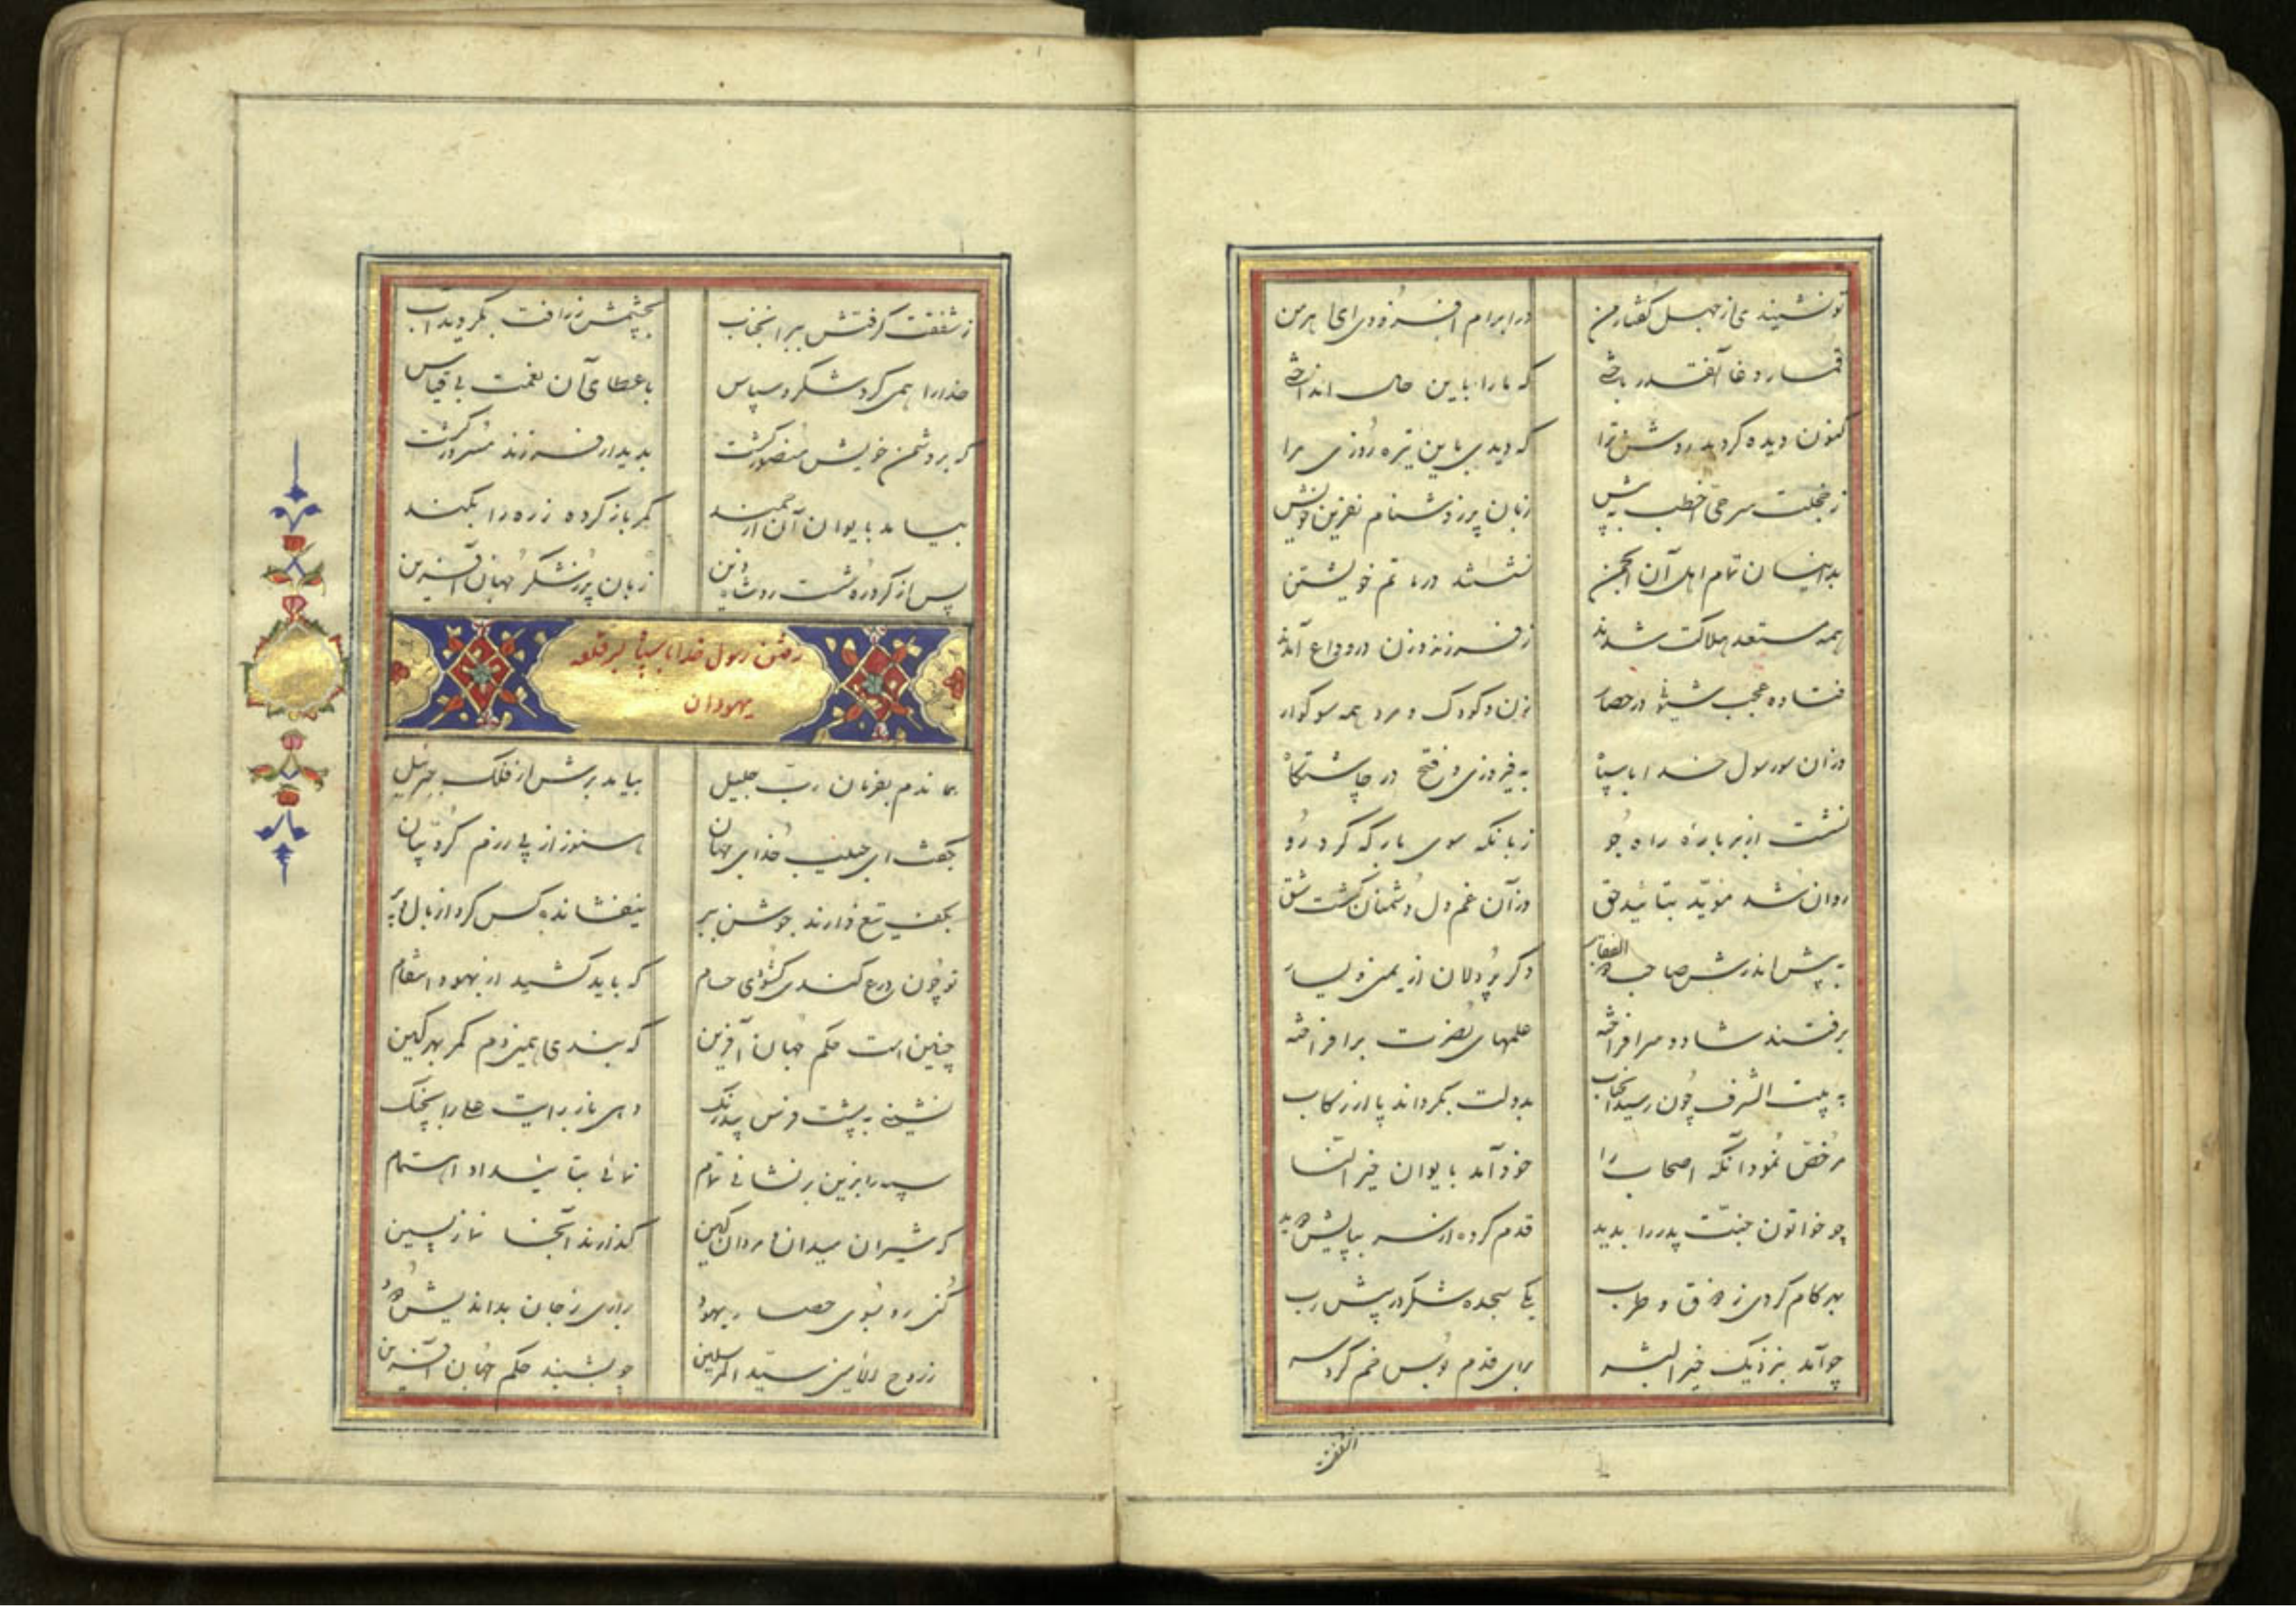 تو نشنیدی از جهل گفتار من در ابرام افزودی ای اهرمن
قمار دغا آنقدر باختی که ما را باین حال انداختی
کنون دیده کردید روشن ترا که دیدی باین تیره روزی مرا
ز خجلت سر حی اخطب به پیش زبان پر ز دشنام نفرین خویش
بدینسان تمام اهل آن انجمن نشستند در ماتم خویشتن
همه مستعد هلاکت شدند ز فرزند و زن در وداع آمدند
فتاده عجب شیونی در حصار زن و کودک و مرد همه سوکوار
وزان سو رسول خدا با سپاه به فیروزی و فتح در چاشتگاه
نشست از بر باره راه جو زبانکه سوی بارگه کرد رو
روان شد مؤید بتائید حق وز آن غم دل دشمنان گشت شق
به پیش اندرش صاحب ذوالفقار دگر پردلان از یمین و یسار
برفتند شاد و سرافراخته علمهای نصرت برافراخته
به بیت الشرف چون رسید آنجناب بدولت بگرداند پا از رکاب
مرخص نمود آنگه اصحاب را خود آمد بایوان خیر النسا
چو خواتون جنت پدر را بدید قدم کرده از سر بپایش دوید
بهر کام کردی ز ذوق و طرب یکی سجده شکر در پیش رب
چو آمد بنزدیک خیر البشر برای قدم بوس خم کرد سر
ز شفقت
ز شفقت گرفتش ببر آنجناب بچشمش ز رافت بگردید آب
خدا را همی کرد شکر و سپاس باعطای آن نعمت بی قیاس
که بر دشمن خویش منصور گشت بدیدار فرزند مسرور گشت
بیامد بایوان آن ارجمند کمر باز کرده زره را بکند
پس از گرد ره شست رو شاه دین زبان پر ز شکر جهان آفرین
رفتن رسول خدا با سپاه بر قلعه
یهودان
هماندم بفرمان رب جلیل بیامد برش از فلک جبرئیل
بگفت ای حبیب خدای جهان هنوز از پی رزم کروبیان
بکف تیغ دارند جوشن ببر نیفشانده کس گرد از بال و پر
تو چون درع کندی گشودی حسام که باید کشید از یهود انتقام
چنین است حکم جهان آفرین که بندی همین دم کمر بهر کین
نشینی به پشت فرس بیدرنگ دهی باز رایت علی را بچنگ
سپه را بزین بر نشانی تمام نمائی بتا شداد اهتمام
که شیران میدان و مردان کین گذارند آنجا نماز پسین
کنی رو بسوی حصار یهود براری ز جان بداندیش دود
ز روح الامین سید المرسلین چو بشنید حکم جهان آفرین